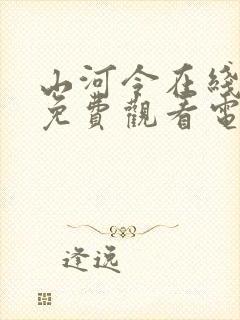 山河令在綫
免費觀看電
逢逸